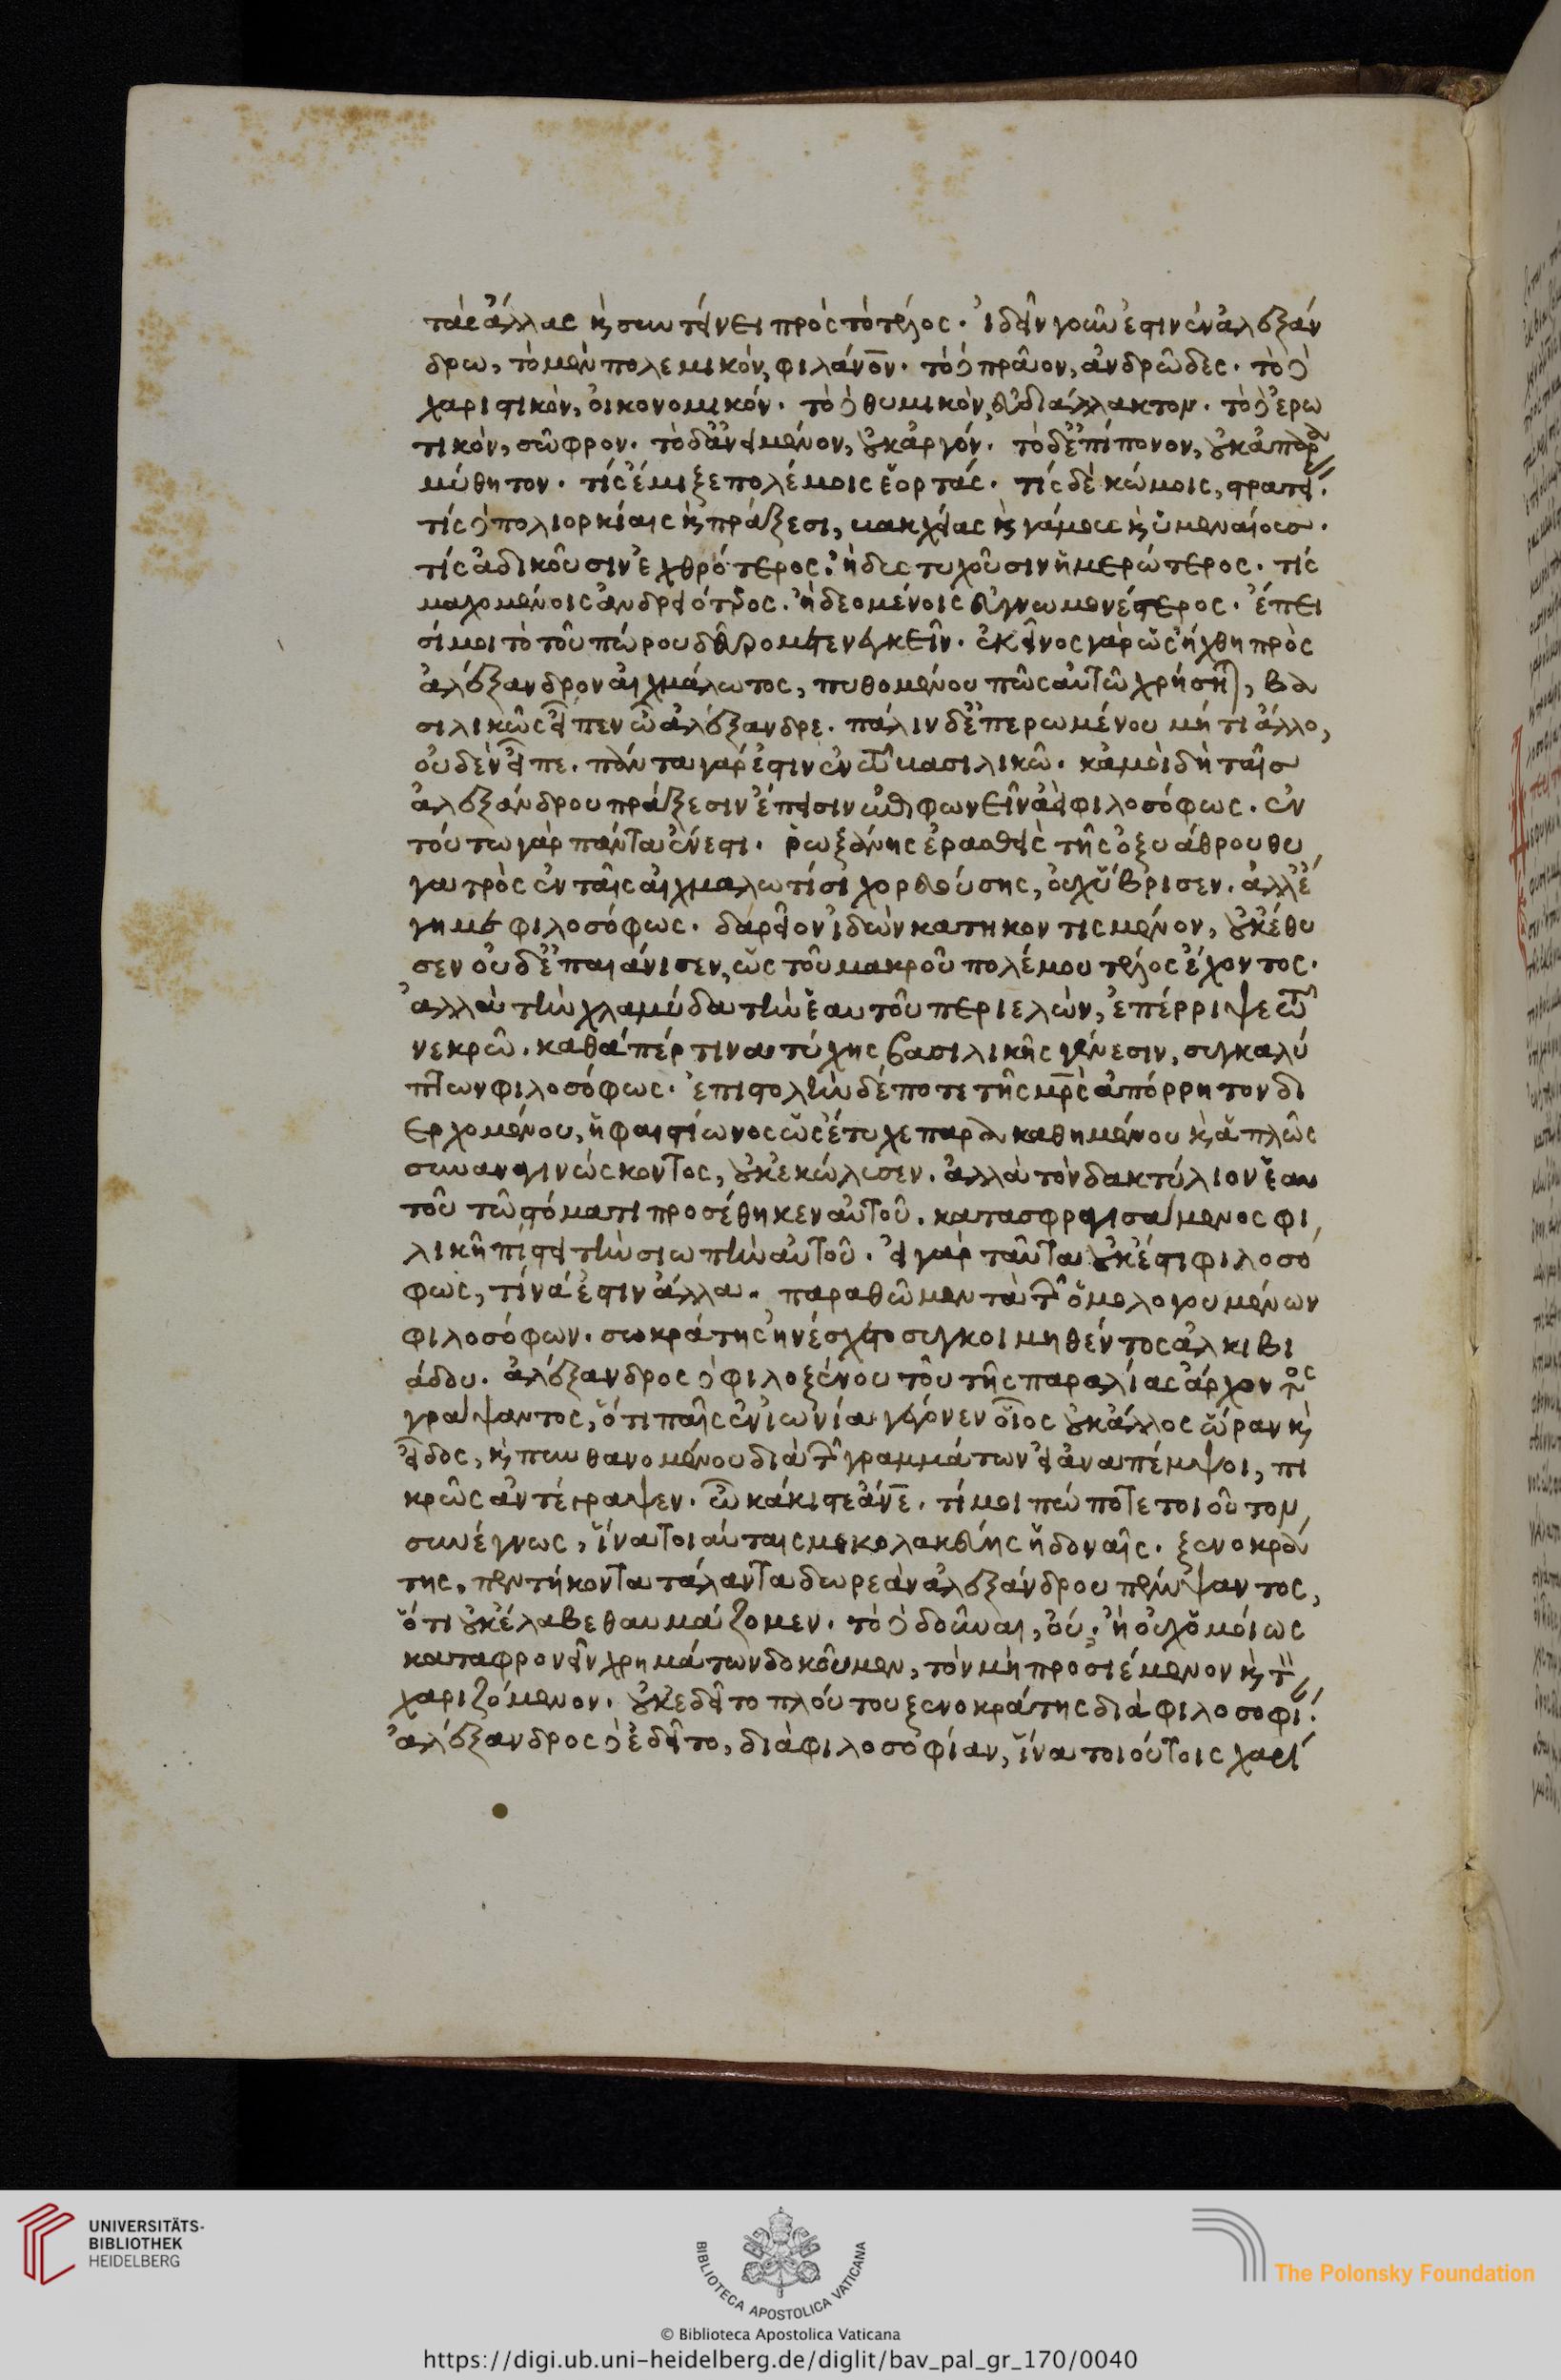 τὰς ἄλλας κ̀ συντείνει πρὸς τὸ τέλος. ἰδεῖν γοῦν ἐστιν ἐν ἀλεξάν
δρω, τὸ μὲν πολεμικόν, φιλάνο̅ν. τὸ δὲ πρᾶον, ἀνδρῶδες. τὸ δὲ
χαριστικὸν, οἰκονομικόν. τὸ δὲ θυμικὸν, εὐδιάλλακτον. τὸ δὲ ἐρω
τικὸν, σῶφρον. τὸ δ' ἀνειμένον, οὐκ ἀργόν. τὸ δ' ἐπίπονον, οὐκ ἀπαρα
μύθητον. τίς ἔμιξε πολέμοις ἑορτάς. τίς δὲ κώμοις, στρατεί.
τίς δὲ πολιορκίαις κ̀ πράξεσι, βακχείας κ̀ γάμους κ̀ ὑμεναίους.
τίς ἀδικοῦσιν ἐχθρότερος. ἢ δυστυχοῦσιν ἡμερώτερος. τίς
μαχομένοις ἀνδρειότερος. ἢ δεομένοις εὐγνωμονέστερος. ἔπει
σί μοι τὸ τοῦ πώρου δεῦρο μετενεγκεῖν. ἐκεῖνος γὰρ ὡς ἤχθη πρὸς
ἀλέξανδρον αἰχμάλωτος, πυθομένου πῶς αὐτῶ χρήσηται, βα
σιλικῶς εἶπεν ὦ ἀλέξανδρε. πάλιν δ' ἐπερωμένου μή τι ἄλλο,
οὐδὲν εἶπε. πάντα γάρ ἐστιν ἐν τῶ βασιλικῶ. κἀμοὶ δὴ ταῖς
ἀλεξάνδρου πράξεσιν ἔπεισιν ἐπιφωνεῖν ἀεὶ φιλοσόφως. ἐν
τούτω γὰρ πάντα ἔνεστι. ῥωξάνης ἐρασθεὶς τῆς ὀξυάθρου θυ
γατρὸς ἐν ταῖς αἰχμαλωτίσι χορευούσης, οὐχ ὕβρισεν. ἀλλ' ἔ
γημε φιλοσόφως. δαρεῖον ἰδὼν κατηκοντισμένον, οὐκ ἔθυ
σεν οὐδ' ἐπαιάνισεν, ὡς τοῦ μακροῦ πολέμου τέλος ἔχοντος.
ἀλλὰ τὴν χλαμύδα τὴν ἑαυτοῦ περιελὼν, ἐπέρριψε τῶ
νεκρῶ. καθάπέρ τινα τύχης βασιλικῆς γένεσιν, συγκαλύ
πτων φιλοσόφως. ἐπιστολὴν δέ ποτε τῆς μρ̅ς ἀπόρρητον δι
ερχομένου, ἡφαιστίωνος ὡς ἔτυχε παρακαθημένου κ̀ ἁπλῶς
συναναγινώσκοντος, οὐκ ἐκώλυσεν. ἀλλὰ τὸν δακτύλιον ἑαυ
τοῦ τῶ στόματι προσέθηκεν αὐτοῦ. κατασφραγισάμενος φι
λικῆ πίστει τὴν σιωπὴν αὐτοῦ. εἰ γὰρ ταῦτα οὐκ ἔστι φιλοσό
φως, τίνά ἐστιν ἄλλα. παραθῶμεν τὰ τῶν ὁμολογουμένων
φιλοσόφων. σωκράτης ἠνέσχετο συγκοιμηθέντος ἀλκιβι
άδου. ἀλέξανδρος δὲ φιλοξένου τοῦ τῆς παραλίας ἄρχοντος
γράψαντος, ὅτι παῖς ἐν ἰωνία γέγονεν οἷος οὐκ ἄλλος ὥραν κ̀
εἶδος, κ̀ πυνθανομένου διὰ τῶν γραμμάτων εἰ ἀναπέμψοι, πι
κρῶς ἀντέγραψεν. ὦ κάκιστε ἀν̅ε. τί μοι πώποτε τοιοῦτον
συνέγνως, ἵνα τοιαύταις με κολακεύης ἡδοναῖς. ξενοκρά
της, πεντήκοντα τάλαντα δωρεὰν ἀλεξάνδρου πέμψαντος,
ὅτι οὐκ ἔλαβε θαυμάζομεν. τὸ δὲ δοῦναι, οὔ. ἢ οὐχ ὁμοίως
καταφρονεῖν χρημάτων δοκοῦμεν, τὸν μὴ προσιέμενον κ̀ τὸν
χαριζόμενον. οὐκ ἐδεῖτο πλούτου ξενοκράτης διὰ φιλοσοφί.
ἀλέξανδρος δὲ ἐδεῖτο, διὰ φιλοσοφίαν, ἵνα τοιούτοις χαρί
UNIVERSITÄTS-
BIBLIOTHEK
HEIDELBERG
BIBLIOTECA APOSTOLICA VATICANA
The Polonsky Foundation
© Biblioteca Apostolica Vaticana
https://digi.ub.uni-heidelberg.de/diglit/bav_pal_gr_170/0040